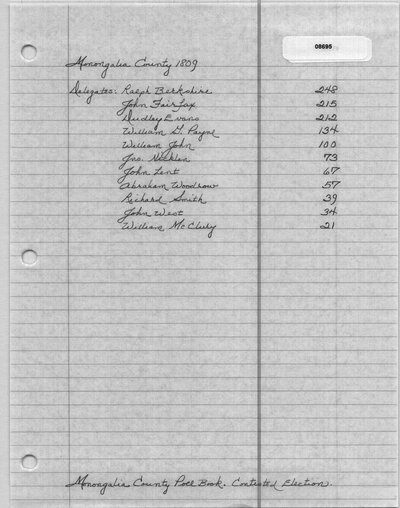 08695
Monongalia County 1809
Delegates: Ralph Berkshire 248
John Fairfax 215
Dudley Evans 212
William G. Payne 134
William John 100
Jno. Nicklin 73
John Lent 67
Abraham Woodrow 57
Richard Smith 39
John West 34
William McClury 21
Monongalia County Poll Book. Contested Election.